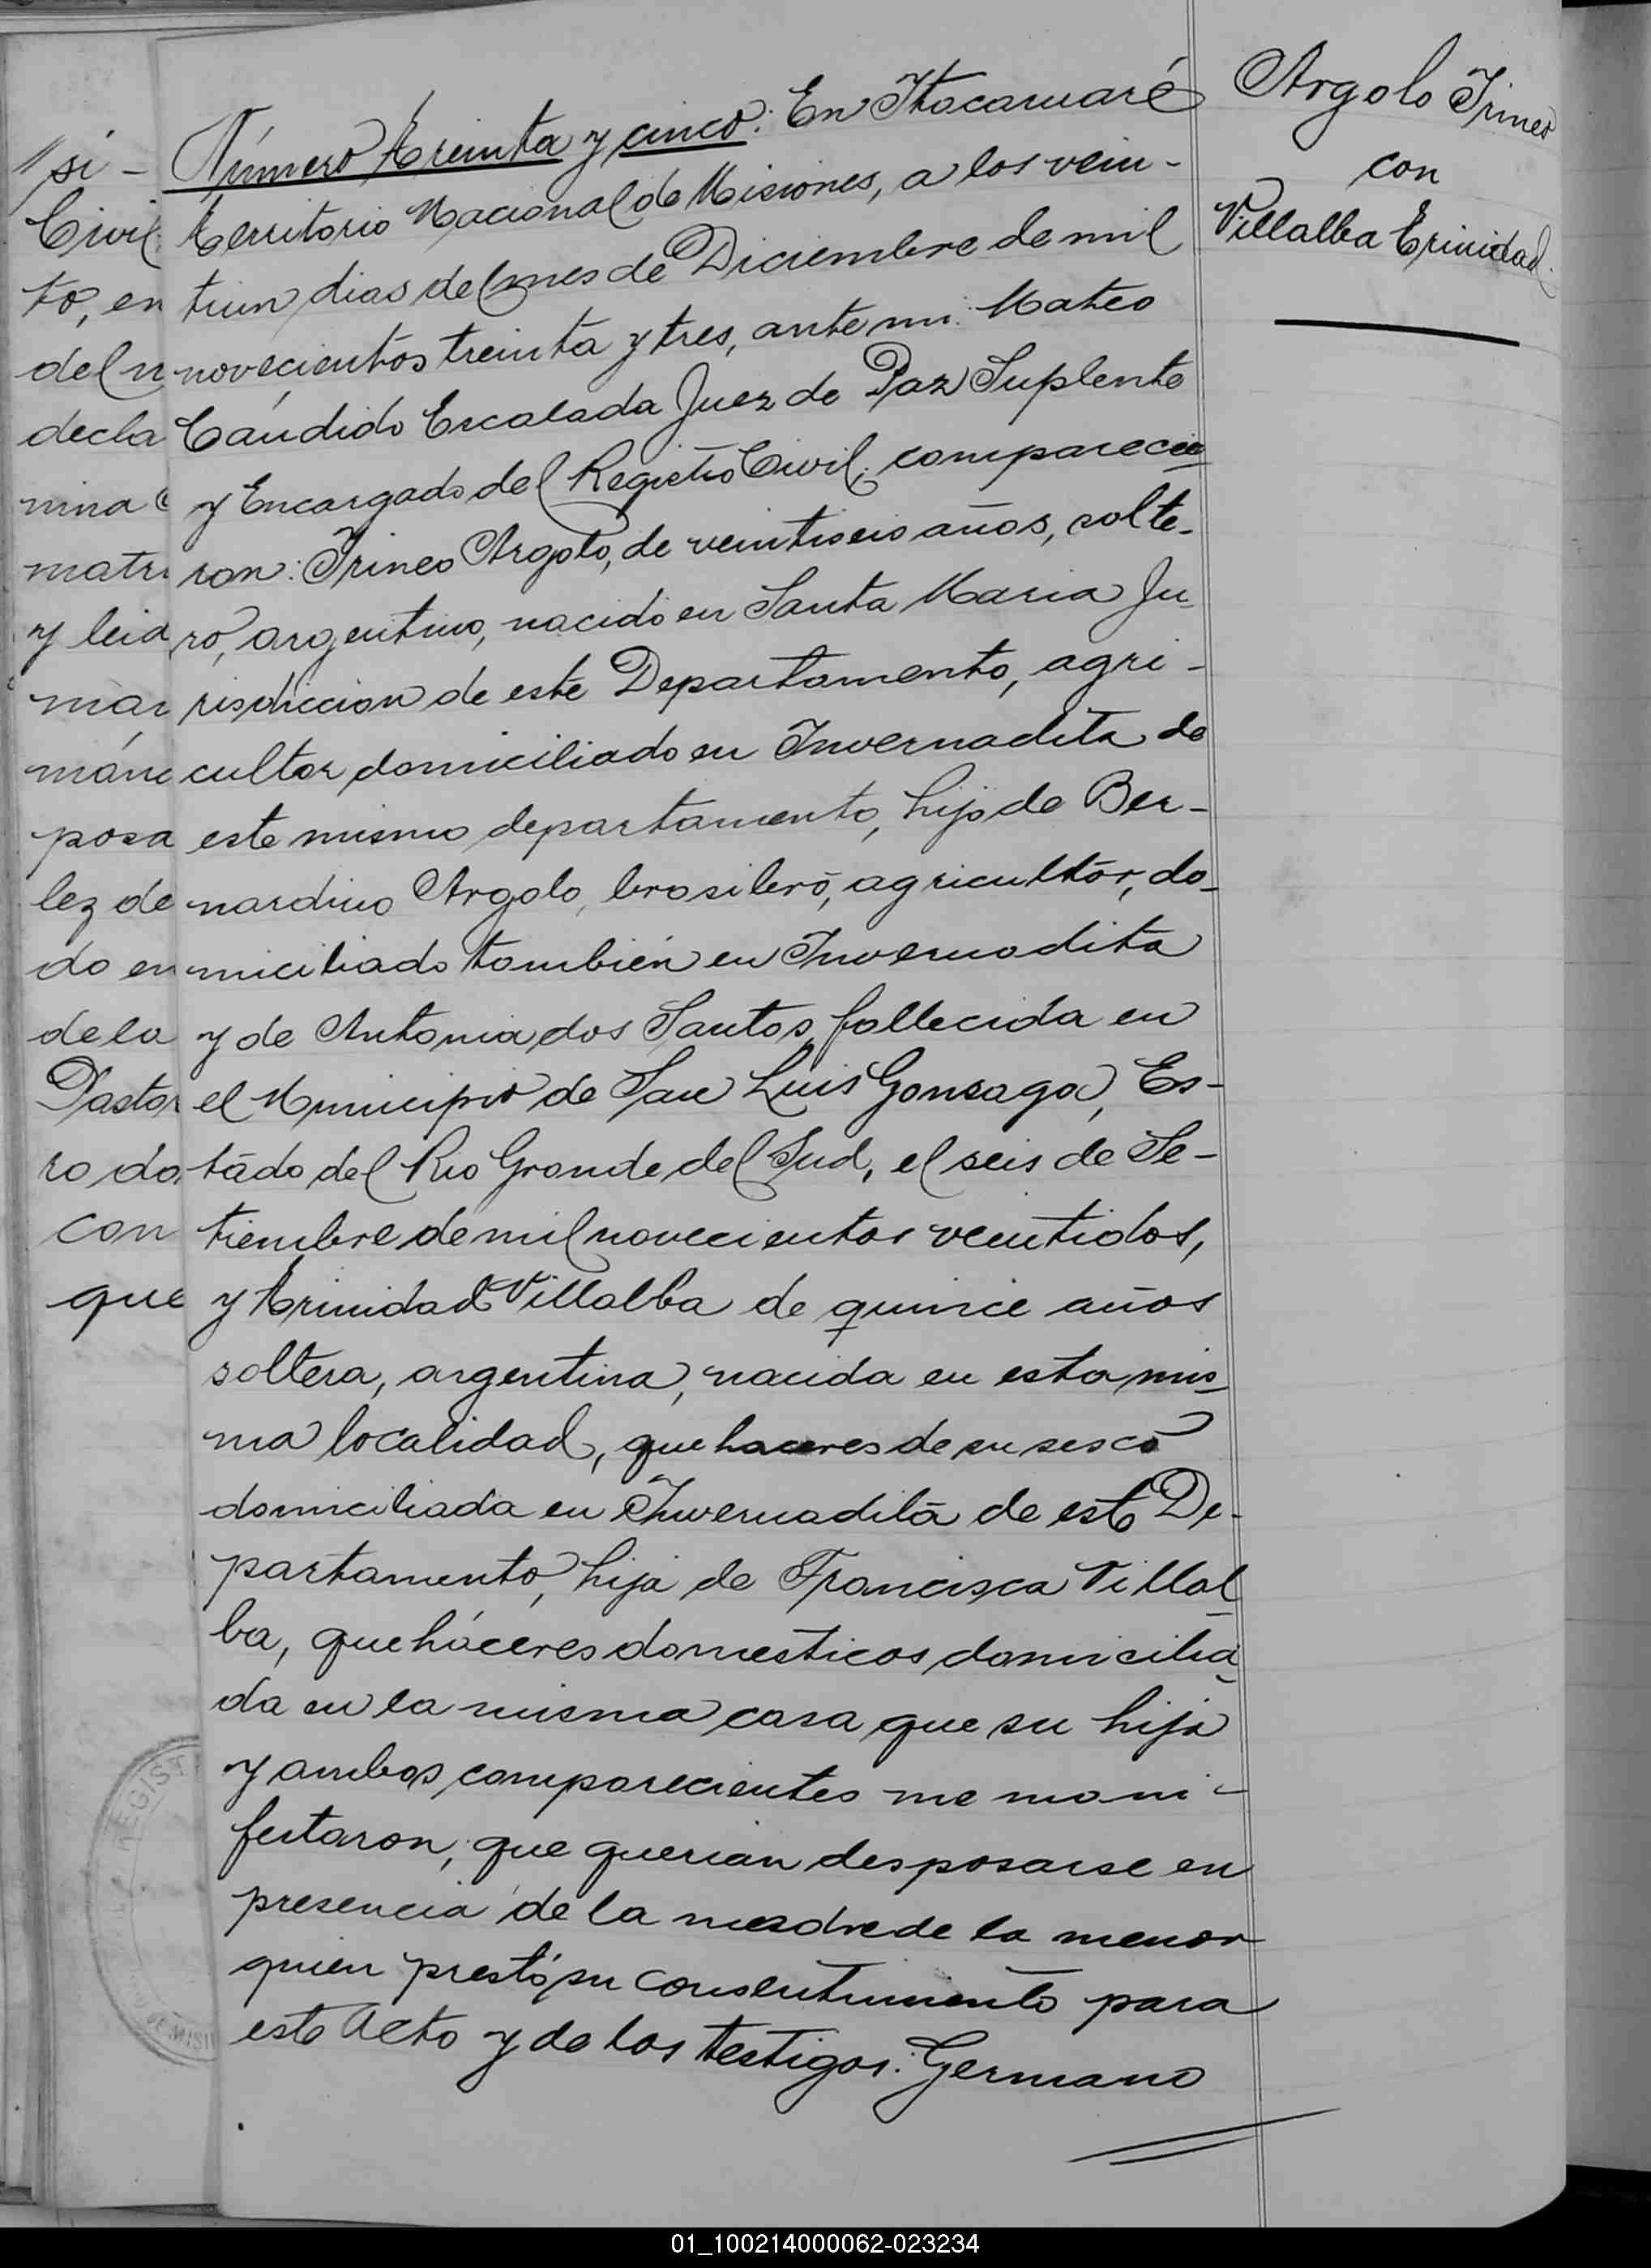 Argolo Irineo
con
Villalba Trinidad.
Número treinta y cinco: En Itacaruaré
Territorio Nacional de Misiones, a los vein-
tiun dias del mes de Diciembre de mil
novecientos treinta y tres, ante mi: Mateo
Cándido Escalada Juez de Paz Suplente
y Encargado del Registro Civil; comparecie
ron: Irineo Argolo, de veintiseis años, solte-
ro, argentino, nacido en Santa Maria Ju
risdiccion de este Departamento, agri-
cultor, domiciliado en Invernadita de
este mismo departamento, hijo de Ber-
nardino Argolo, brasilero, agricultor, do-
miciliado también en Invernadita
y de Antonia dos Santos, fallecida en
el Municipio de San Luis Gonzaga, Es-
tado del Rio Grande del Sud, el seis de Se-
tiembre de mil novecientos veintidos,
y Trinidad Villalba de quince años
soltera, argentina, nacida en esta mis-
ma localidad, quehaceres de su sesco
domiciliada en Invernadita de este De-
partamento, hija de Francisca Villal
ba, quehaceres domesticos, domicilia-
da en la misma casa que su hija
y ambos comparecientes me mani-
festaron, que querian desposarse en
presencia de la madre de la menor
quien prestó su consentimiento para
este Acto y de los testigos: Germano
si -
Civil
to, en
del
decla
nina
matri
y leid
mar
mán
posa
lez de
do en
de la
Pastor
ro do
con
que
REGIST
DE MISI
01_100214000062-023234